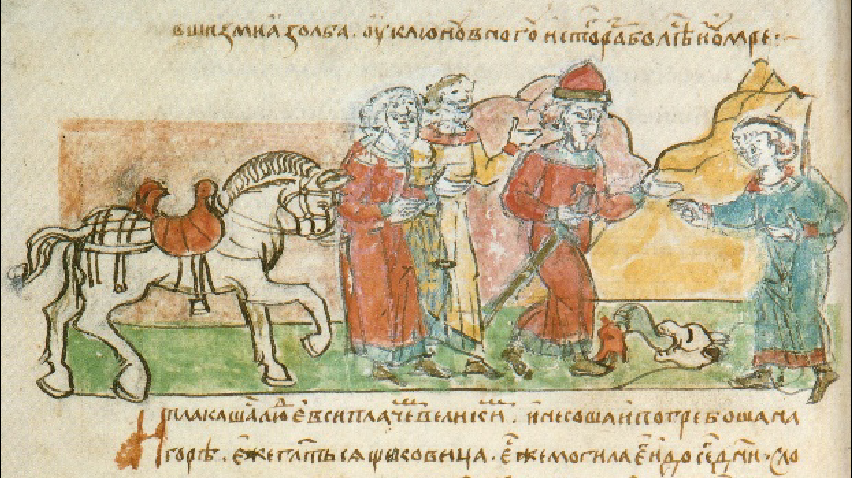 вши змиꙗ зо лба . оуклюнов в ного и с того разболѣ и оумре :-
И плакаша люде вси плачем великим . и несоша и погребоша на
горѣ . еже глть сѧ щековица . е же могила е и до се дни . сло